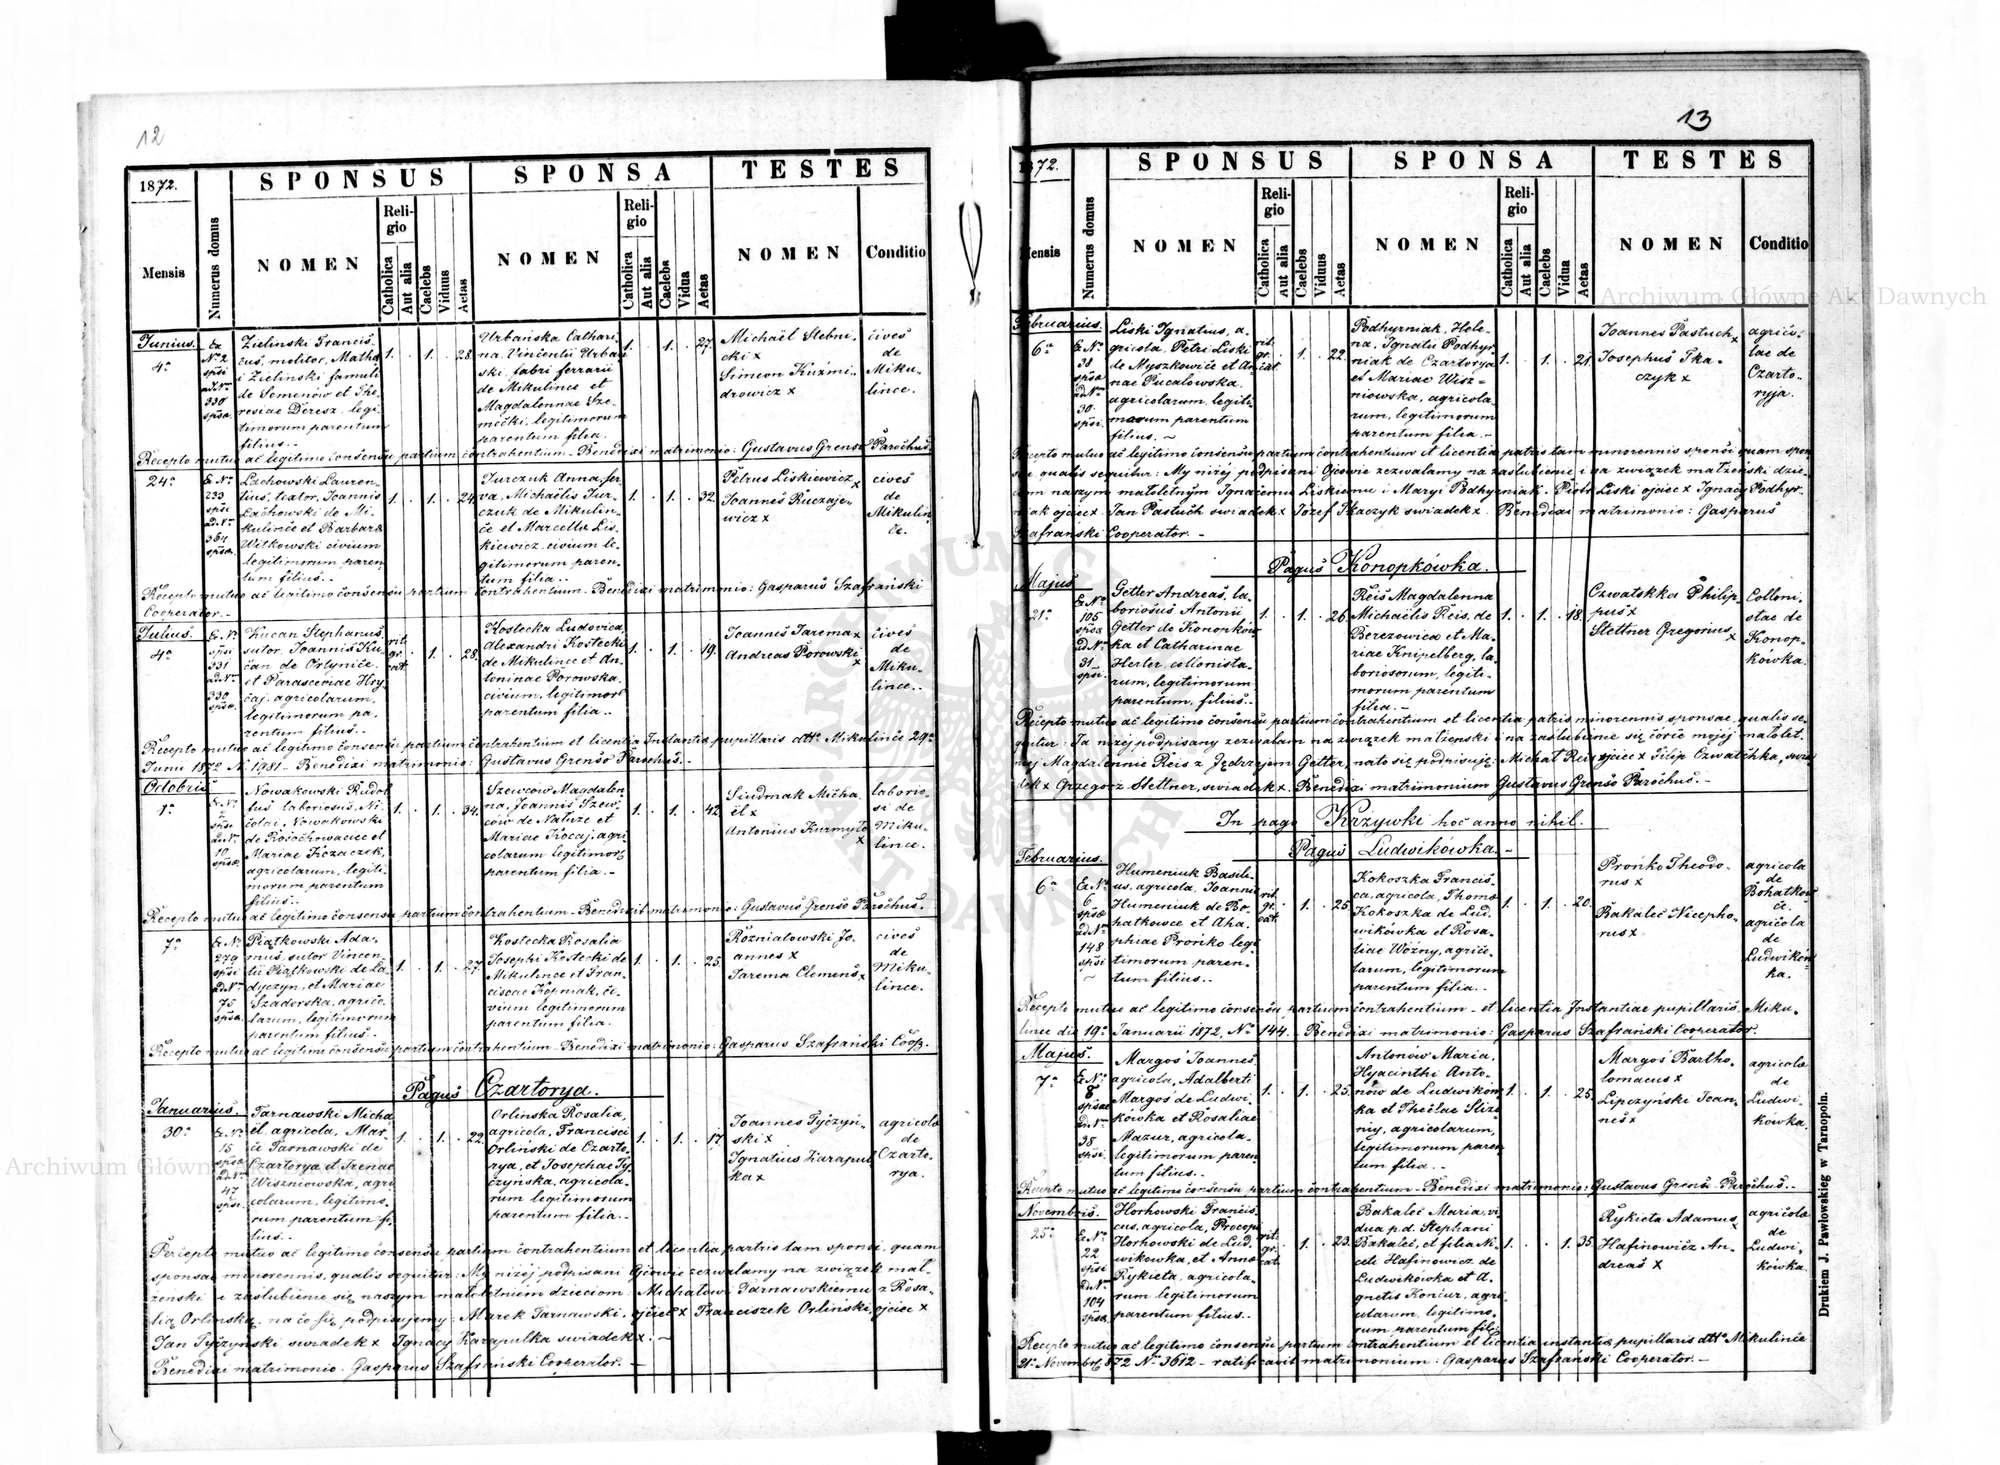 12
1872.
SPONSUS
SPONSA
TESTES
Mensis
Numerus domus
NOMEN
Religio
Catholica
Aut alia
Caelebs
Viduus
Aetas
NOMEN
Religio
Catholica
Aut alia
Caelebs
Vidua
Aetas
NOMEN
Conditio
Junius.
4ª
Ex
Nº 2
spsi
ad Nº
330
spsae
Zielinski Francis-
cus, molitor, Mathe-
i Zielinski famuli
de Semenów et The-
resiae Deresz, legi-
timorum parentum
filius.
1. 1. 28.
Urbańska Cathari-
na, Vincentii Urbań-
ski, fabri ferrarii
de Mikulince et
Magdalennae
legitimorum
parentum filia.
1. 1. 27.
Michaël Stebni-
cki x
Simeon Kuźmi-
drowicz x
cives
de
Miku-
lince.
Recepto mutuo ac legitimo consensu partium contrahentium - Benedixi matrimonio: Gustavus Grenso Parochus.
24ª
Ex Nº
233
spsi
ad Nº
364
spsae
Lachowski Lauren-
tius, textor, Joannis
Lachowski de Mi-
kulince et Barbarae
Witkowski civium
legitimorum paren-
tum filius.
1. 1. 24.
Jurczuk Anna, ser-
va, Michaëlis Jur-
czuk de Mikulin-
ce et Marcella Lis-
kiewicz, civium le-
gitimorum paren-
tum filia.
1. 1. 32.
Petrus Liskiewicz x
Joannes Ruczaje-
wicz x
cives
de
Mikulin-
ce.
Recepto mutuo ac legitimo consensu partium contrahentium - Benedixi matrimonio: Gasparus Szafrański
Cooperator.
Julius.
4ª
Ex Nº
spsi
331
ad Nº
330
spsae
Kucan Stephanus,
sutor, Joannis Ku-
can de Ortynice
et Parasceviae Hry-
caj, agricolarum,
legitimorum pa-
rentum filius.
rit.
gr.
cat.
1. 28.
Kostecka Ludovica,
Alexandri Kostecki
de Mikulince et An-
toninae Porowska,
civium, legitimor
parentum filia.
1. 1. 19.
Joannes Jarema x
Andreas Porowski x
cives
de
Miku-
lince.
Recepto mutuo ac legitimo consensu partium contrahentium et licentia Instantiae pupillaris dtto Mikulince 29ª
Junii 1872 N. 1981 - Benedixi matrimonio: Gustavus Grenso Parochus.
Octobris
1ª
Ex Nº
spsi
ad Nº
10
spsae
Nowakowski Rudol-
fus laboriosus, Ni-
colai Nowakowski
de Rosochowaciec et
Mariae Kozaczek,
agricolarum, legiti-
morum parentum
filius.
1. 1. 34.
Szewców Magdalen-
na, Joannis Szew-
ców de Nałuże et
Mariae Kocaj, agri-
colarum legitimor
parentum filia.
1. 1. 42.
Sindmak Micha-
ël x
Antonius Kurmyło x
laborio-
si de
Miku-
lince.
Recepto mutuo ac legitimo consensu partium contrahentium - Benedixit matrimonio: Gustavus Grenso Parochus.
7ª
Ex Nº
279
spsi
ad Nº
75
spsae
Piątkowski Ada-
mus, sutor Vincen-
tii Piątkowski de La-
dyczyn, et Mariae
Szaderska, agrico-
larum, legitimorum
parentum filius.
1. 1. 27.
Kostecka Rosalia
Josephi Kostecki de
Mikulince et Fran-
ciscae Kopniak, ci-
vium legitimorum
parentum filia.
1. 1. 25.
Rozniatowski Jo-
annes x
Jarema Clemens x
cives
de
Miku-
lince.
Recepto mutuo ac legitimo consensu partium contrahentium - Benedixi matrimonio: Gasparus Szafrański Coop.
Pagus Czartorya.
Januarius.
30ª
Ex Nº
15
spsae
ad Nº
47
spsi.
Tarnawski Micha-
ël agricola, Mar-
ci Tarnawski de
Czartorya et Irenae
Wiszniowska, agri-
colarum, legitimo-
rum parentum fi-
lius.
1. 1. 22.
Orlinska Rosalia,
agricola, Francisci
Orliński de Czarto-
rya, et Josephae Ty-
czyńska, agricola-
rum legitimorum
parentum filia.
1. 1. 17.
Joannes Tyczyń-
ski x
Ignatius Karapul-
ka x
agricolae
de
Czarto-
rya.
Percepto mutuo ac legitimo consensu partium contrahentium et licentia patris tam sponsi, quam
sponsae minorennis, qualis sequitur: My niżej podpisani Ojcowie zezwalamy na związek mał-
żenski i zaslubienie się naszym małoletniem dzieciom: Michałowi Tarnawskiemu z Rosa-
lią Orlinską, na co się podpisujemy: Marek Tarnawski, ojciec x Franciszek Orliński, ojciec x
Jan Tyczynski swiadek x Ignacy Karapulka swiadek x.
Benedixi matrimonio: Gasparus Szafrański Cooperator.
13
1872.
SPONSUS
SPONSA
TESTES
Mensis
Numerus domus
NOMEN
Religio
Catholica
Aut alia
Caelebs
Viduus
Aetas
NOMEN
Religio
Catholica
Aut alia
Caelebs
Vidua
Aetas
NOMEN
Conditio
Februarius.
6ª
Ex Nº
38
spsae
ad Nº
30.
spsi.
Liski Ignatius, a-
gricola, Petri Liski
de Myszkowice et An-
nae Pucalowska,
agricolarum, legiti-
morum parentum
filius.
rit.
gr.
cat.
1. 22.
Podhyrniak, Hele-
na, Ignatii Podhyr-
niak de Czartorya
et Mariae Wisz-
niowska, agricola-
rum, legitimorum
parentum filia.
1. 1. 21.
Joannes Pastuch x
Josephus Tka-
czyk x
agrico-
lae de
Czarto-
ryja.
Recepto mutuo ac legitimo consensu partium contrahentium et licentia patris tam minorennis sponsi quam spon-
sae qualis sequitur: My niżej podpisani Ojcowie zezwalamy na zaslubienie i na związek małżenski dzie-
ciom naszym małoletnym Ignacemu Liskiemu i Maryi Podhyrniak. Piotr Liski ojciec x Ignacy Podhyr-
niak ojciec x. Jan Pastuch swiadek x Józef Tkaczyk swiadek x. Benedixi matrimonio: Gasparus
Szafrański Cooperator.
Pagus Konopkówka.
Majus
21ª
Ex Nº
105
spsae
ad Nº
31
spsi.
Getter Andreas, la-
boriosus Antonii
Getter de Konopków-
ka et Catharinae
Herter, collonista-
rum, legitimorum
parentum, filius.
1. 1. 26.
Reis Magdalenna
Michaëlis Reis, de
Berezowica et Ma-
riae Knipelberg, la-
boriosorum, legiti-
morum parentum
filia.
1. 1. 18.
Czwatskka Philip-
pus x
Stettner Gregorius x
Colloni-
stae de
Konop-
kówka.
Recepto mutuo ac legitimo consensu partium contrahentium et licentia patris minorennis sponsae, qualis se-
quitur: Ja niżej podpisany zezwalam na związek małżenski i na zaslubienie się córce mojej małolet-
niej Magdalennie Reis z Jędrzejem Getter, na to się podpisuję: Michał Reis ojciec x Filip Czwatchka, swia-
dek x Grzegorz Stettner, swiadek x. Benedixi matrimonium Gustavus Grenso Parochus.
In pago Krzywki hoc anno nihil.
Pagus Ludwikówka.
Februarius.
6ª
Ex Nº
6
spsae
ad Nº
148
spsi
Humeniuk Basili-
us, agricola, Joannis
Humeniuk de Bo-
hatkowce et Aha-
phiae Prońko legi-
timorum paren-
tum filius.
rit.
gr.
cat.
1. 25.
Kokoszka Francis-
ca, agricola, Thomae
Kokoszka de Lud-
wikówka et Rosa-
liae Woźny, agrico-
larum, legitimorum
parentum filia.
1. 1. 20.
Prońko Theodo-
rus x
Bakalec Nicepho-
rus x
agricola
de
Bohatkow-
ce.
agricola
de
Ludwików-
ka.
Recepto mutuo ac legitimo consensu partium contrahentium - et licentia Instantiae pupillaris Miku-
lince die 19ª Januarii 1872, Nº 144. - Benedixi matrimonio: Gasparus Szafrański Cooperator.
Majus.
7ª
Ex Nº
8
spsae
ad Nº
38
spsi.
Margoś Joannes
agricola, Adalberti
Margoś de Ludwi-
kówka et Rosaliae
Mazur, agricola-
legitimorum paren-
tum filius.
1. 1. 25.
Antonów Maria,
Hyacinthi Anto-
nów de Ludwików-
ka et Theclae Sliz-
niy, agricolarum,
legitimorum paren-
tum filia.
1. 1. 25.
Margoś Bartho-
lomaeus x
Lipczyński Joan-
nes x
agricolae
de
Ludwi-
kówka.
Recepto mutuo ac legitimo consensu partium contrahentium - Benedixi matrimonio: Gustavus Grenso Parochus.
Novembris.
25ª
Ex Nº
22
spsi
ad Nº
104
spsae
Horhowski Francis-
cus, agricola, Procopi
Horhowski de Lud-
wikowka, et Annae
Rykieta, agricola-
rum legitimorum
parentum filius.
rit.
gr.
cat.
1. 23.
Bakalec Maria, vi-
dua p.d. Stephani
Bakalec, et filia Ni-
ceti Hafinowicz de
Ludwikówka et A-
gnetis Konciur, agri-
colarum, legitimo-
rum parentum filia.
1. 1. 35.
Rykieta Adamus x
Hafinowicz An-
dreas x
agricolae
de
Ludwi-
kówka.
Recepto mutuo ac legitimo consensu partium contrahentium et licentia instantia pupillaris dtto Mikulince
21ª Novembr. 872 Nº 3612 - ratificavit matrimonium: Gasparus Szafrański Cooperator.
Drukiem J. Pawłowskieg w Tarnopoln.
Archiwum Główne Akt Dawnych
Archiwum Główne Akt Dawnych
ARCHIWUM GŁÓWNE AKT DAWNYCH